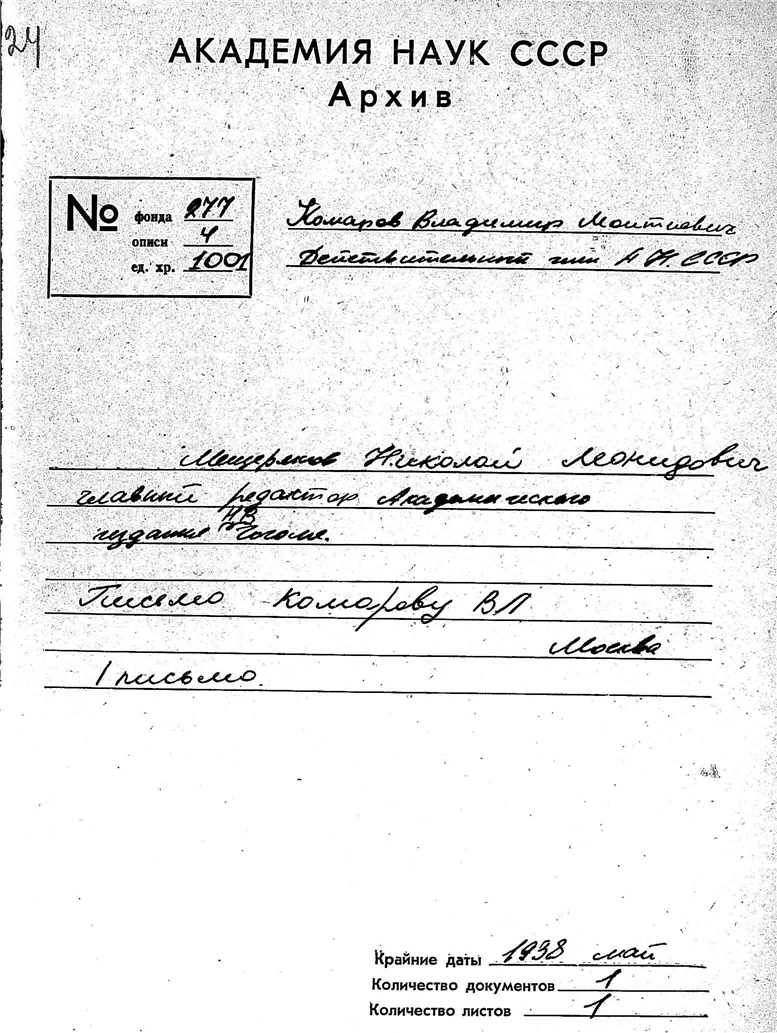 24
АКАДЕМИЯ НАУК СССР
Архив
№ фонда 277
описи 4
ед. хр. 1001
Комаров Владимир Леонтиевич
Действительный член АН СССР
Мещеряков Николай Леонидович
главный редактор Академического
издания НВ Гоголя.
Письмо Комарову ВЛ
Москва
1 письмо.
Крайние даты 1938 май
Количество документов 1
Количество листов 1